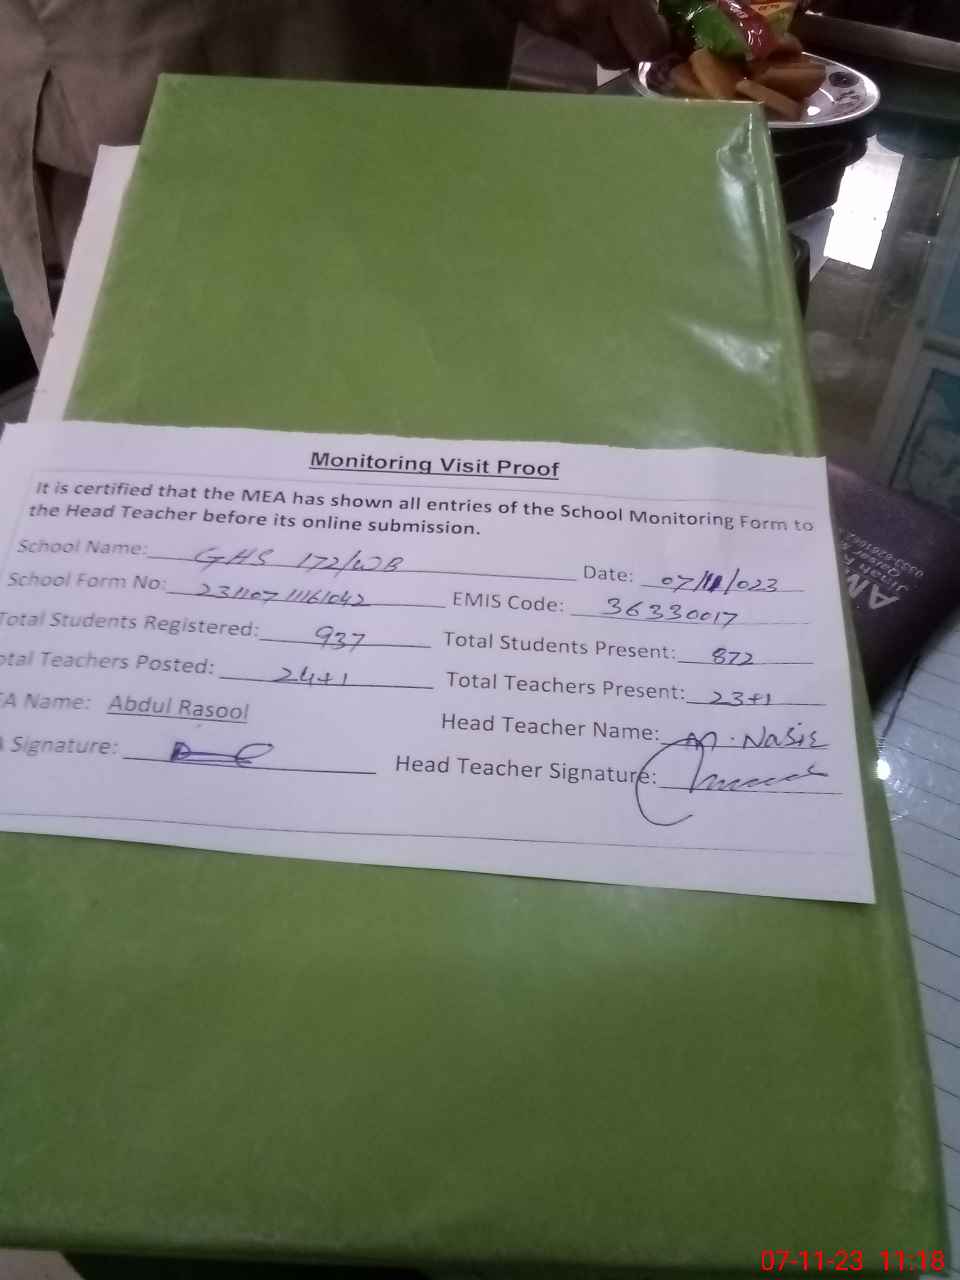 Monitoring Visit Proof
It is certified that the MEA has shown all entries of the School Monitoring Form to
the Head Teacher before its online submission.
School Name: GHS 172/WB Date: 07/11/023
School Form No: 231107 11161042 EMIS Code: 36330017
Total Students Registered: 937 Total Students Present: 872
otal Teachers Posted: 24+1 Total Teachers Present: 23+1
EA Name: Abdul Rasool Head Teacher Name: M. Nasir
A Signature: Head Teacher Signature:
AM
07-11-23 11:18